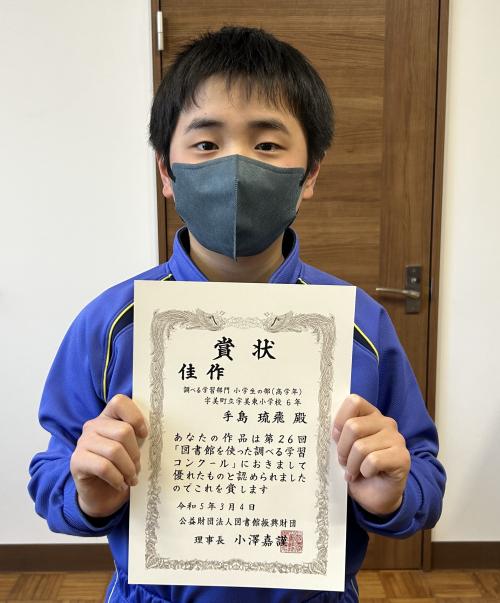 賞状
佳作
調べる学習部門 小学生の部(高学年)
宇美町立宇美東小学校 6年
手島 琉飛 殿
あなたの作品は第26回
「図書館を使った調べる学習
コンクール」におきまして
優れたものと認められました
のでこれを賞します
令和5年3月4日
公益財団法人図書館振興財団
理事長 小澤嘉謹